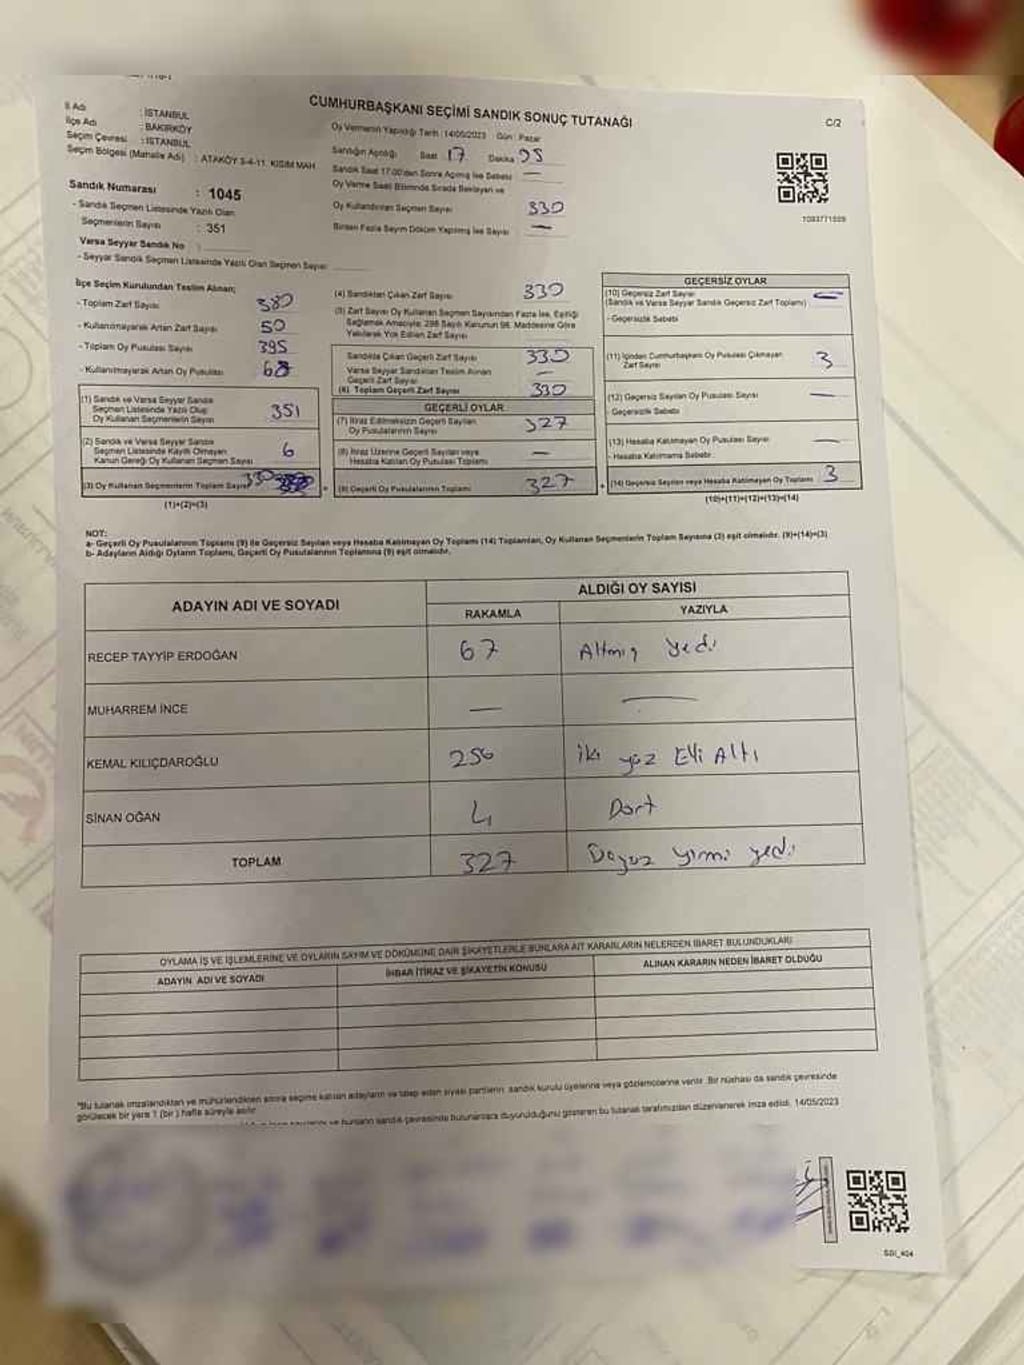 CUMHURBAŞKANI SEÇİMİ SANDIK SONUÇ TUTANAĞI
C/2
İl Adı : İSTANBUL
İlçe Adı : BAKIRKÖY
Seçim Çevresi : İSTANBUL
Seçim Bölgesi (Mahalle Adı) : ATAKÖY 3-4-11. KISIM MAH.
Sandık Numarası : 1045
- Sandık Seçmen Listesinde Yazılı Olan
Seçmenlerin Sayısı : 351
Varsa Seyyar Sandık No :
- Seyyar Sandık Seçmen Listesinde Yazılı Olan Seçmen Sayısı
Oy Vermenin Yapıldığı Tarih : 14/05/2023 Gün : Pazar
Sandığın Açıldığı Saat 17 Dakika
Sandık Saat 17.00'den Sonra Açılmış İse Sebebi —
Oy Verme Saati Bitiminde Sırada Bekleyen ve
Oy Kullandırılan Seçmen Sayısı 330
Birden Fazla Sayım Döküm Yapılmış İse Sayısı —
1093771559
İlçe Seçim Kurulundan Teslim Alınan;
- Toplam Zarf Sayısı 380
- Kullanılmayarak Artan Zarf Sayısı 50
- Toplam Oy Pusulası Sayısı 395
- Kullanılmayarak Artan Oy Pusulası
(1) Sandık ve Varsa Seyyar Sandık
Seçmen Listesinde Yazılı Olup
Oy Kullanan Seçmenlerin Sayısı 351
(2) Sandık ve Varsa Seyyar Sandık
Seçmen Listesinde Kayıtlı Olmayan
Kanun Gereği Oy Kullanan Seçmen Sayısı 6
(3) Oy Kullanan Seçmenlerin Toplam Sayısı 330
(1)+(2)=(3)
(4) Sandıktan Çıkan Zarf Sayısı 330
(5) Zarf Sayısı Oy Kullanan Seçmen Sayısından Fazla İse, Eşitliği
Sağlamak Amacıyla; 298 Sayılı Kanunun 98. Maddesine Göre
Yakılarak Yok Edilen Zarf Sayısı
Sandıkta Çıkan Geçerli Zarf Sayısı 330
Varsa Seyyar Sandıktan Teslim Alınan
Geçerli Zarf Sayısı —
(6) Toplam Geçerli Zarf Sayısı 330
GEÇERLİ OYLAR
(7) İtiraz Edilmeksizin Geçerli Sayılan
Oy Pusulalarının Sayısı 327
(8) İtiraz Üzerine Geçerli Sayılan veya
Hesaba Katılan Oy Pusulası Toplamı —
(9) Geçerli Oy Pusulalarının Toplamı 327
GEÇERSİZ OYLAR
(10) Geçersiz Zarf Sayısı
(Sandık ve Varsa Seyyar Sandık Geçersiz Zarf Toplamı) —
- Geçersizlik Sebebi
(11) İçinden Cumhurbaşkanı Oy Pusulası Çıkmayan
Zarf Sayısı 3
(12) Geçersiz Sayılan Oy Pusulası Sayısı —
- Geçersizlik Sebebi
(13) Hesaba Katılmayan Oy Pusulası Sayısı —
- Hesaba Katılmama Sebebi:
(14) Geçersiz Sayılan veya Hesaba Katılmayan Oy Toplamı 3
(10)+(11)+(12)+(13)=(14)
NOT:
a- Geçerli Oy Pusulalarının Toplamı (9) ile Geçersiz Sayılan veya Hesaba Katılmayan Oy Toplamı (14) Toplamları, Oy Kullanan Seçmenlerin Toplam Sayısına (3) eşit olmalıdır. (9)+(14)=(3)
b- Adayların Aldığı Oyların Toplamı, Geçerli Oy Pusulalarının Toplamına (9) eşit olmalıdır.
ADAYIN ADI VE SOYADI
ALDIĞI OY SAYISI
RAKAMLA YAZIYLA
RECEP TAYYİP ERDOĞAN 67 Altmış yedi
MUHARREM İNCE — —
KEMAL KILIÇDAROĞLU 256 iki yüz Elli Altı
SİNAN OĞAN 4 Dört
TOPLAM 327 yirmi yedi
OYLAMA İŞ VE İŞLEMLERİNE VE OYLARIN SAYIM VE DÖKÜMÜNE DAİR ŞİKAYETLERLE BUNLARA AİT KARARLARIN NELERDEN İBARET BULUNDUKLARI
ADAYIN ADI VE SOYADI
İHBAR İTİRAZ VE ŞİKAYETİN KONUSU
ALINAN KARARIN NEDEN İBARET OLDUĞU
"Bu tutanak imzalandıktan ve mühürlendikten sonra seçime katılan adayların ve talep eden siyasi partilerin, sandık kurulu üyelerine veya gözlemcilerine verilir. Bir nüshası da sandık çevresinde
görülecek bir yere 1 (bir) hafta süreyle asılır.
ve bunların sandık çevresinde bulunanlara duyurulduğunu gösteren bu tutanak tarafımızdan düzenlenerek imza edildi. 14/05/2023
SGI_404